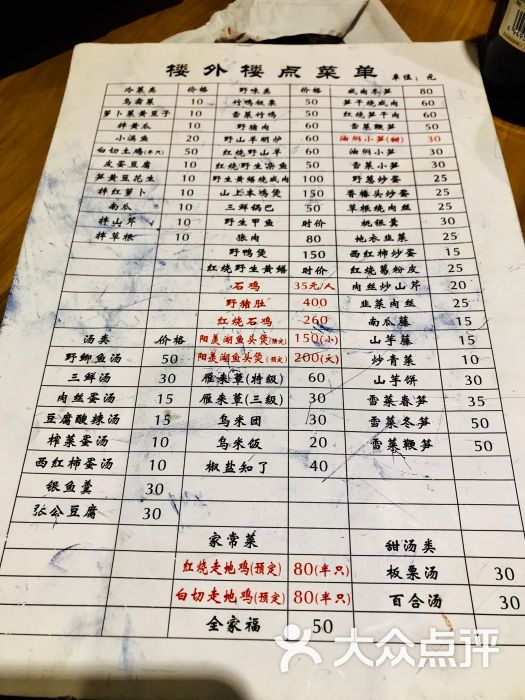 楼外楼点菜单 单位:元
冷菜类 价格 野味类 价格 咸肉冬笋 80
乌霉菜 10 竹鸭板栗 50 笋干烧咸肉 60
萝卜菜黄豆子 10 雪菜竹鸭 50 红烧笋干肉 60
拌黄瓜 10 野猪肉 60 雪菜鞭笋 50
小溪鱼 20 野山羊明炉 60 油焖小笋(甜) 30
白切土鸡(半只) 50 红烧野山羊 50 油焖小笋 30
皮蛋豆腐 10 红烧野生杂鱼 50 雪菜小笋 30
笋黄豆花生 10 野生黄鳝烧咸肉 100 野葱炒蛋 25
拌红萝卜 10 山上本鸡煲 150 香椿头炒蛋 25
南瓜 10 三鲜锅巴 50 草根烧肉丝 25
拌山芹 10 野生甲鱼 时价 桃银羹 30
拌草根 10 狼肉 80 地衣韭菜 25
野鸭煲 150 西红柿炒蛋 15
红烧野生黄鳝 时价 红烧葛粉皮 25
石鸡 35元/人 肉丝炒山芹 20
野猪肚 400 韭菜肉丝 25
红烧石鸡 260 南瓜藤 15
汤类 价格 阳羡湖鱼头煲(预定) 150(小) 山芋藤 15
野鲫鱼汤 50 阳羡湖鱼头煲(预定) 200(大) 炒青菜 10
三鲜汤 30 雁来蕈(特级) 60 山芋饼 30
肉丝蛋汤 15 雁来蕈(三级) 30 雪菜春笋 35
豆腐酸辣汤 15 乌米团 30 雪菜冬笋 50
榨菜蛋汤 10 乌米饭 20 雪菜鞭笋 50
西红柿蛋汤 10 椒盐知了 40
银鱼羹 30
张公豆腐 30
家常菜 甜汤类
红烧走地鸡(预定) 80(半只) 板栗汤 30
白切走地鸡(预定) 80(半只) 百合汤 30
全家福 50
大众点评